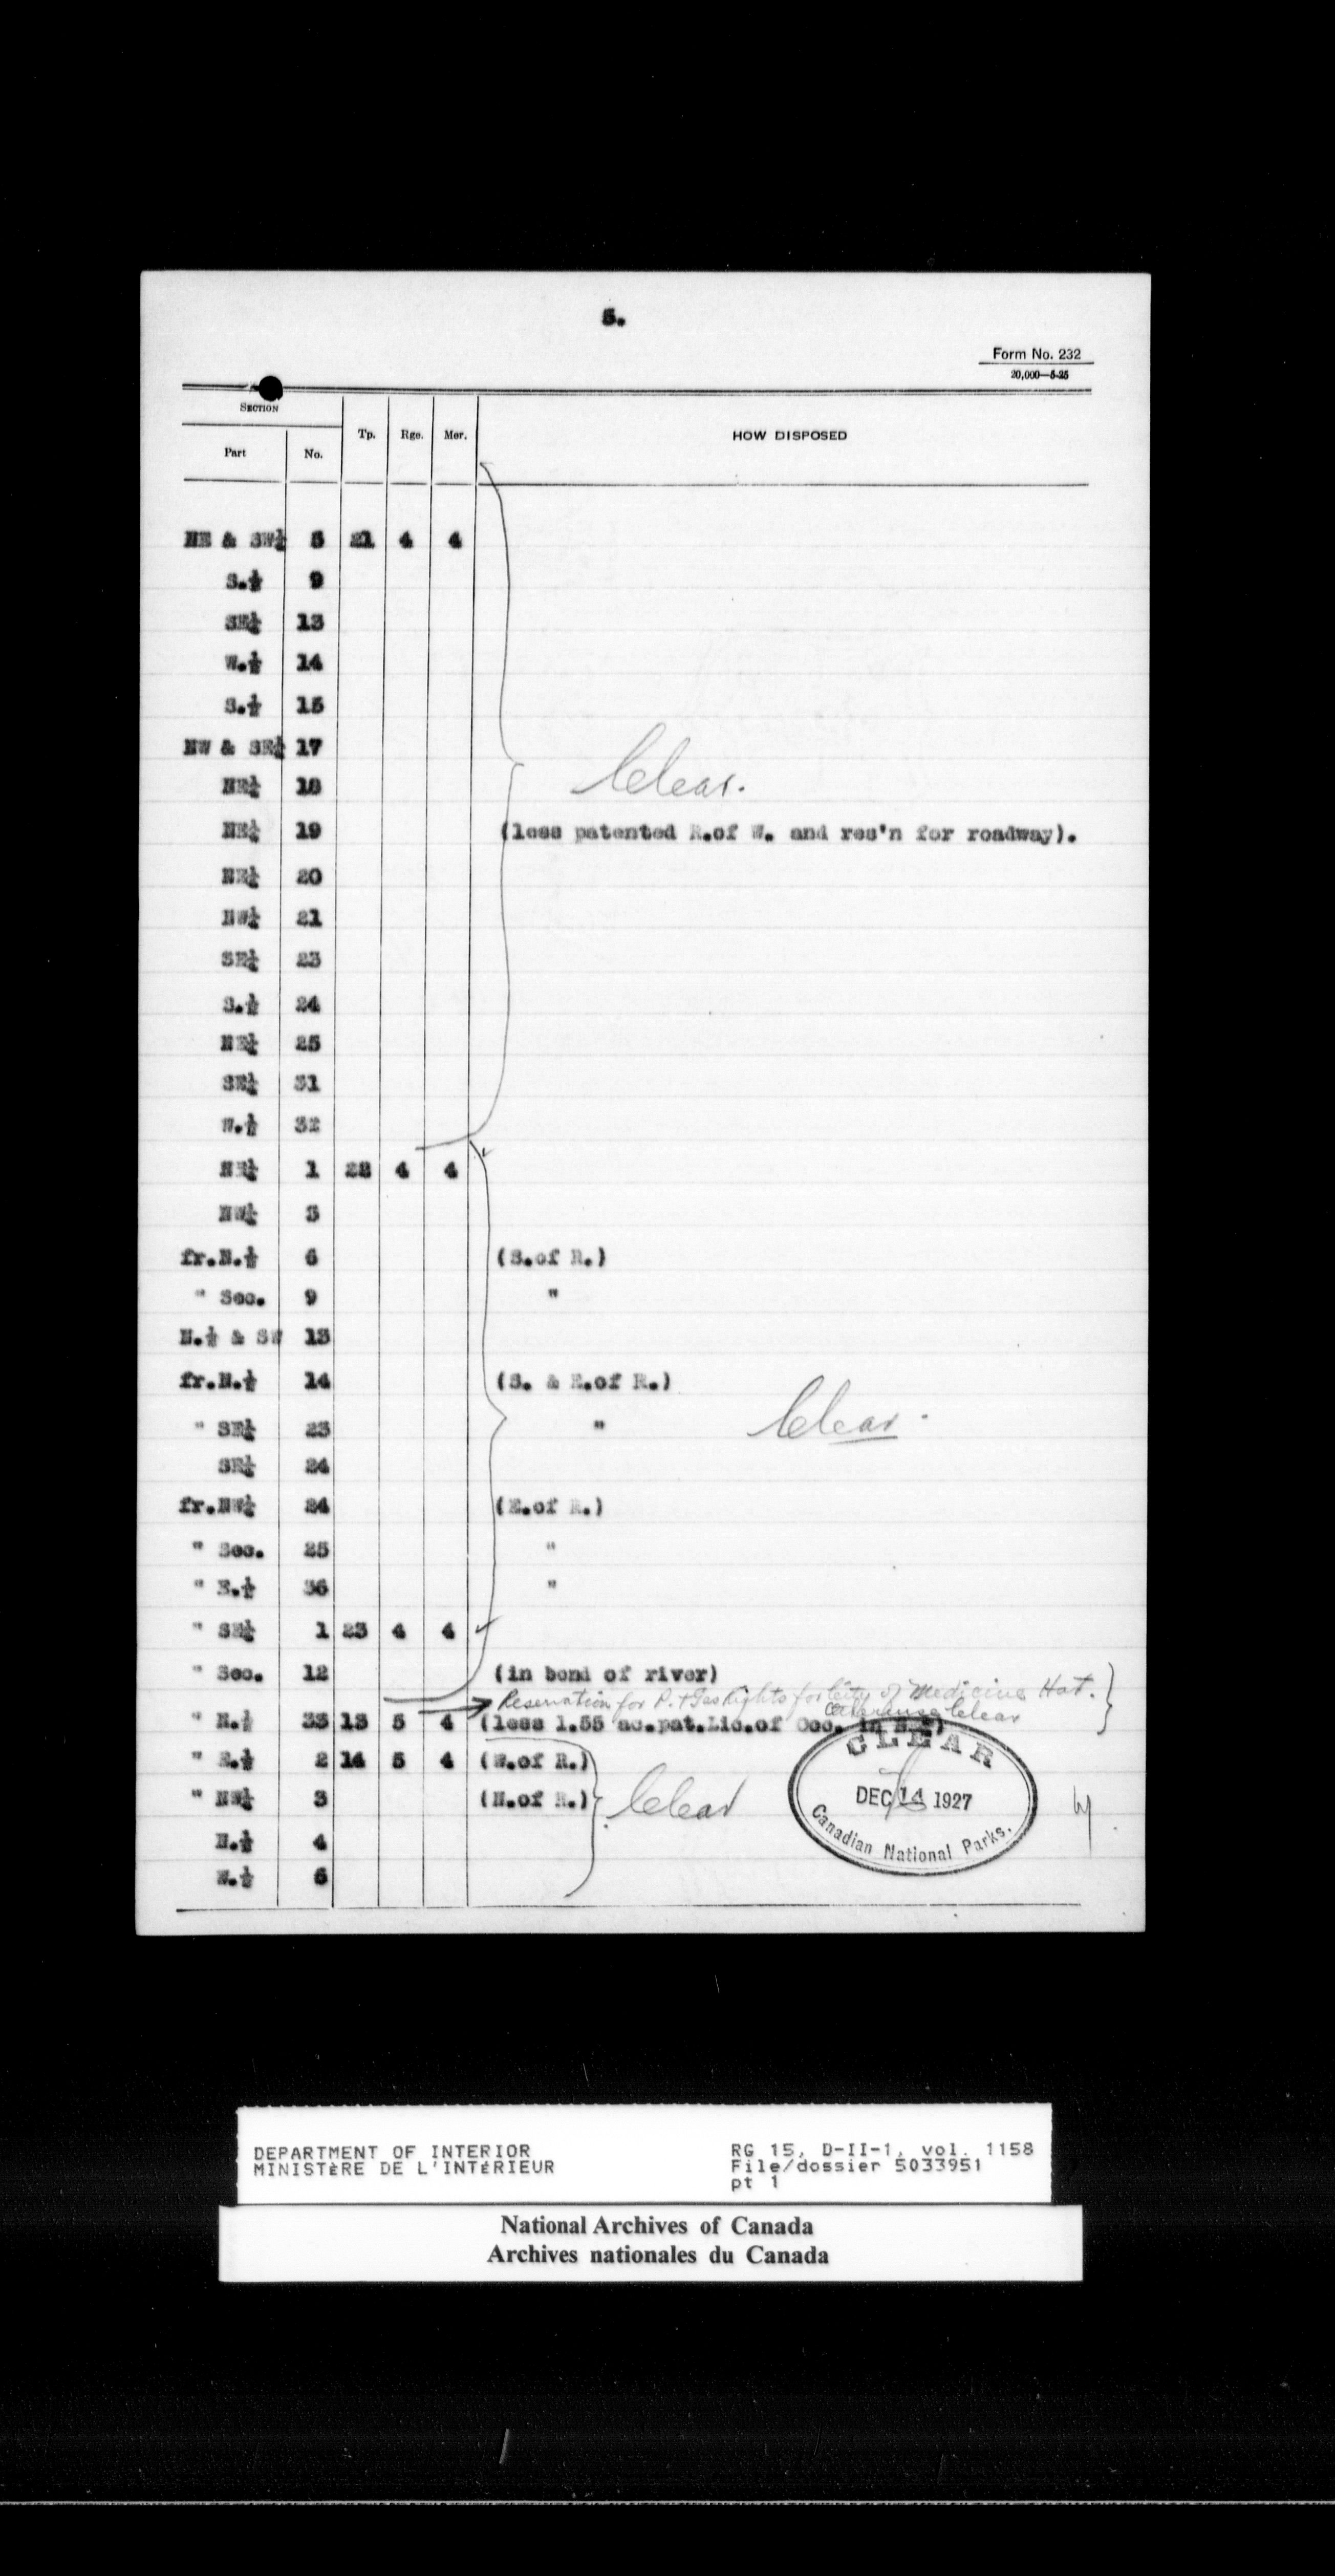 5.
Form No. 232
20,000—5-25
SECTION
Part No. Tp. Rge. Mer. HOW DISPOSED
NE & SW¼ 5 21 4 4
S.½ 9
SE¼ 13
W.½ 14
S.½ 15
NW & SE¼ 17
Clear.
NE¼ 18
NE¼ 19 (less patented R.of W. and res'n for roadway).
NE¼ 20
NW¼ 21
SE¼ 23
S.½ 24
NE¼ 25
SE¼ 31
W.½ 32
NE¼ 1 22 4 4
NW¼ 3
fr.N.½ 6 (S.of R.)
" Sec. 9 "
N.½ & SW 13
fr.N.½ 14 (S. & E.of R.)
Clear.
" SE¼ 23 "
SE¼ 24
fr.NW¼ 24 (E.of R.)
" Sec. 25 "
" E.½ 36 "
" SE¼ 1 23 4 4
" Sec. 12 (in bend of river)
Reservation for P. & Gas Rights for City of Medicine Hat.
otherwise Clear
" N.½ 33 13 5 4 (less 1.55 ac.pat.Lic.of Occ. in N.½)
" E.½ 2 14 5 4 (W.of R.)
" NW¼ 3 (N.of R.) Clear
N.½ 4
W.½ 6
CLEAR
DEC 14 1927
Canadian National Parks.
DEPARTMENT OF INTERIOR
MINISTÈRE DE L'INTÉRIEUR
RG 15, D-II-1, vol. 1158
File/dossier 5033951
pt 1
National Archives of Canada
Archives nationales du Canada